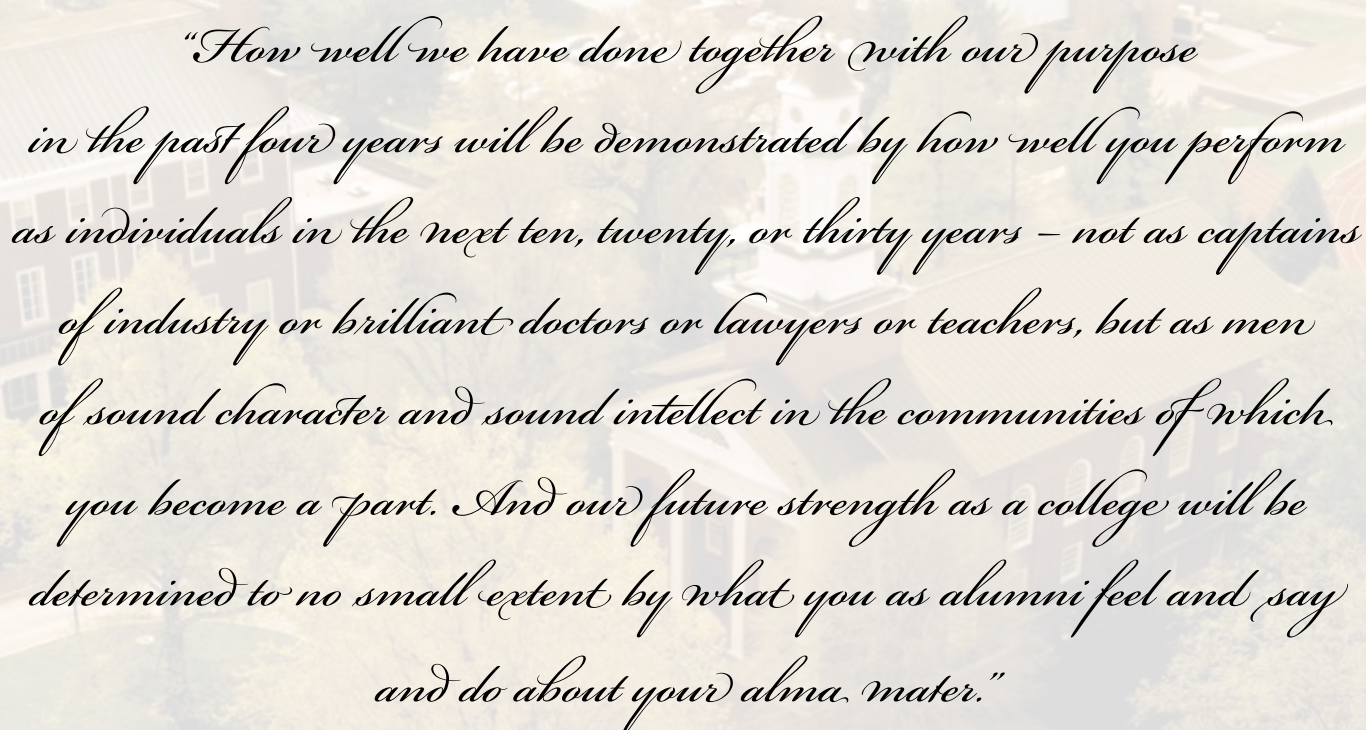 “How well we have done together with our purpose
in the past four years will be demonstrated by how well you perform
as individuals in the next ten, twenty, or thirty years – not as captains
of industry or brilliant doctors or lawyers or teachers, but as men
of sound character and sound intellect in the communities of which
you become a part. And our future strength as a college will be
determined to no small extent by what you as alumni feel and say
and do about your alma mater.”